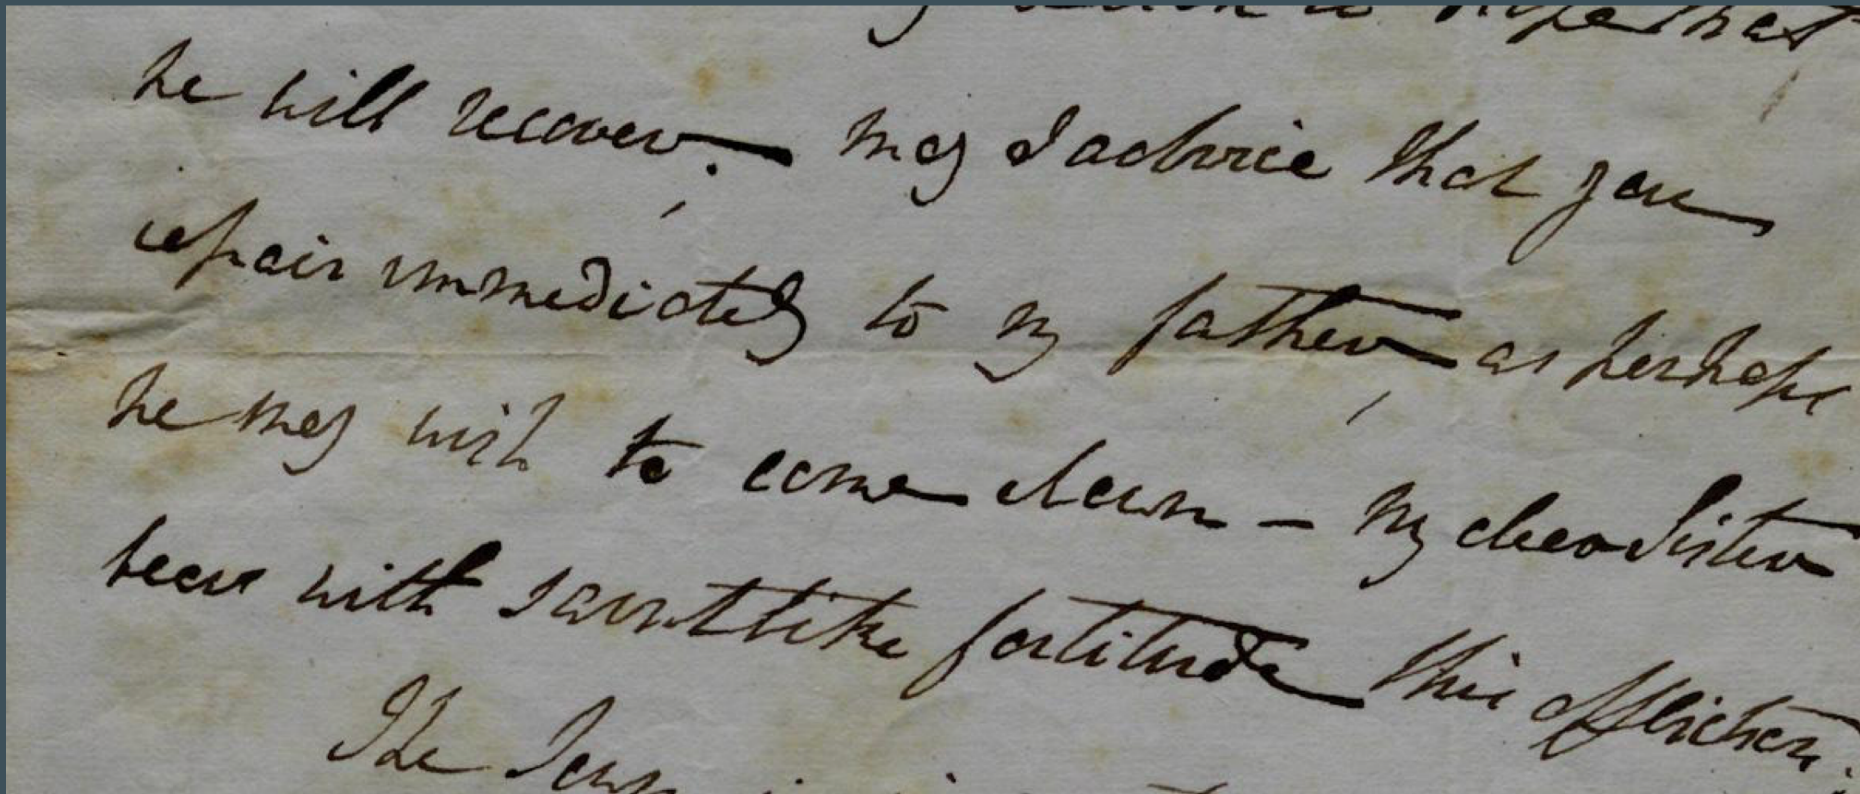 hope that
he will recover. — may I advice that you
repair immediately to my father, as perhaps
he may wish to come down – My dear Sister
bear with saintlike fortitude this affliction.
The